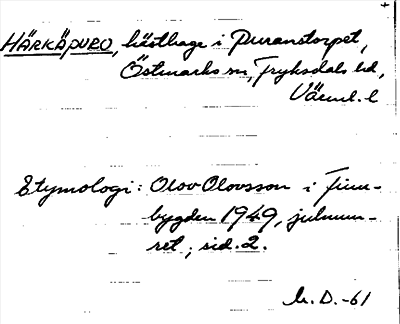 HÄRKÄPURO, hästhage i Puranstorpet,
Östmarks sn, Fryksdals hd,
Värml. l
Etymologi: Olov Olovsson i Finn-
bygden 1949, julnum-
ret, sid. 2.
M.D.-61